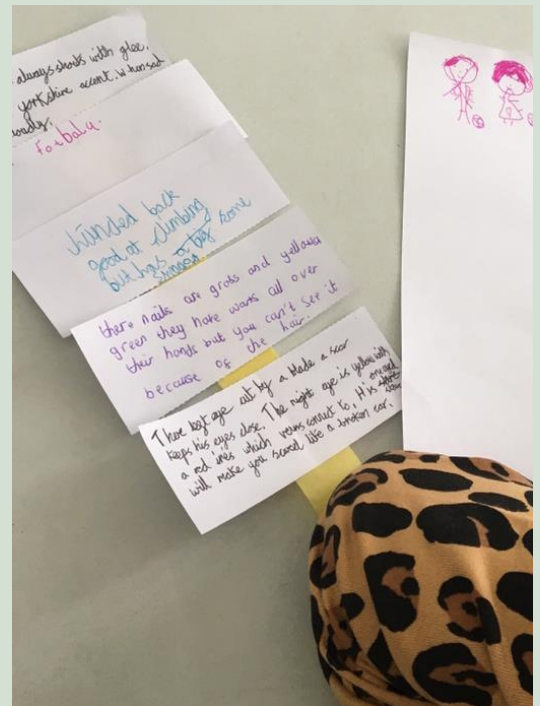 always shouts with glee.
yorkshire accent. When sad
football.
back
good at climbing
but has a big some
there nails are gross and yellow
green they have warts all over
their hands but you can't see it
because of the hair.
eye cut by a blade a scar
keeps his eyes close. The right eye is yellow with
a red ines which veins connect to, His
will make you scared like a broken car.